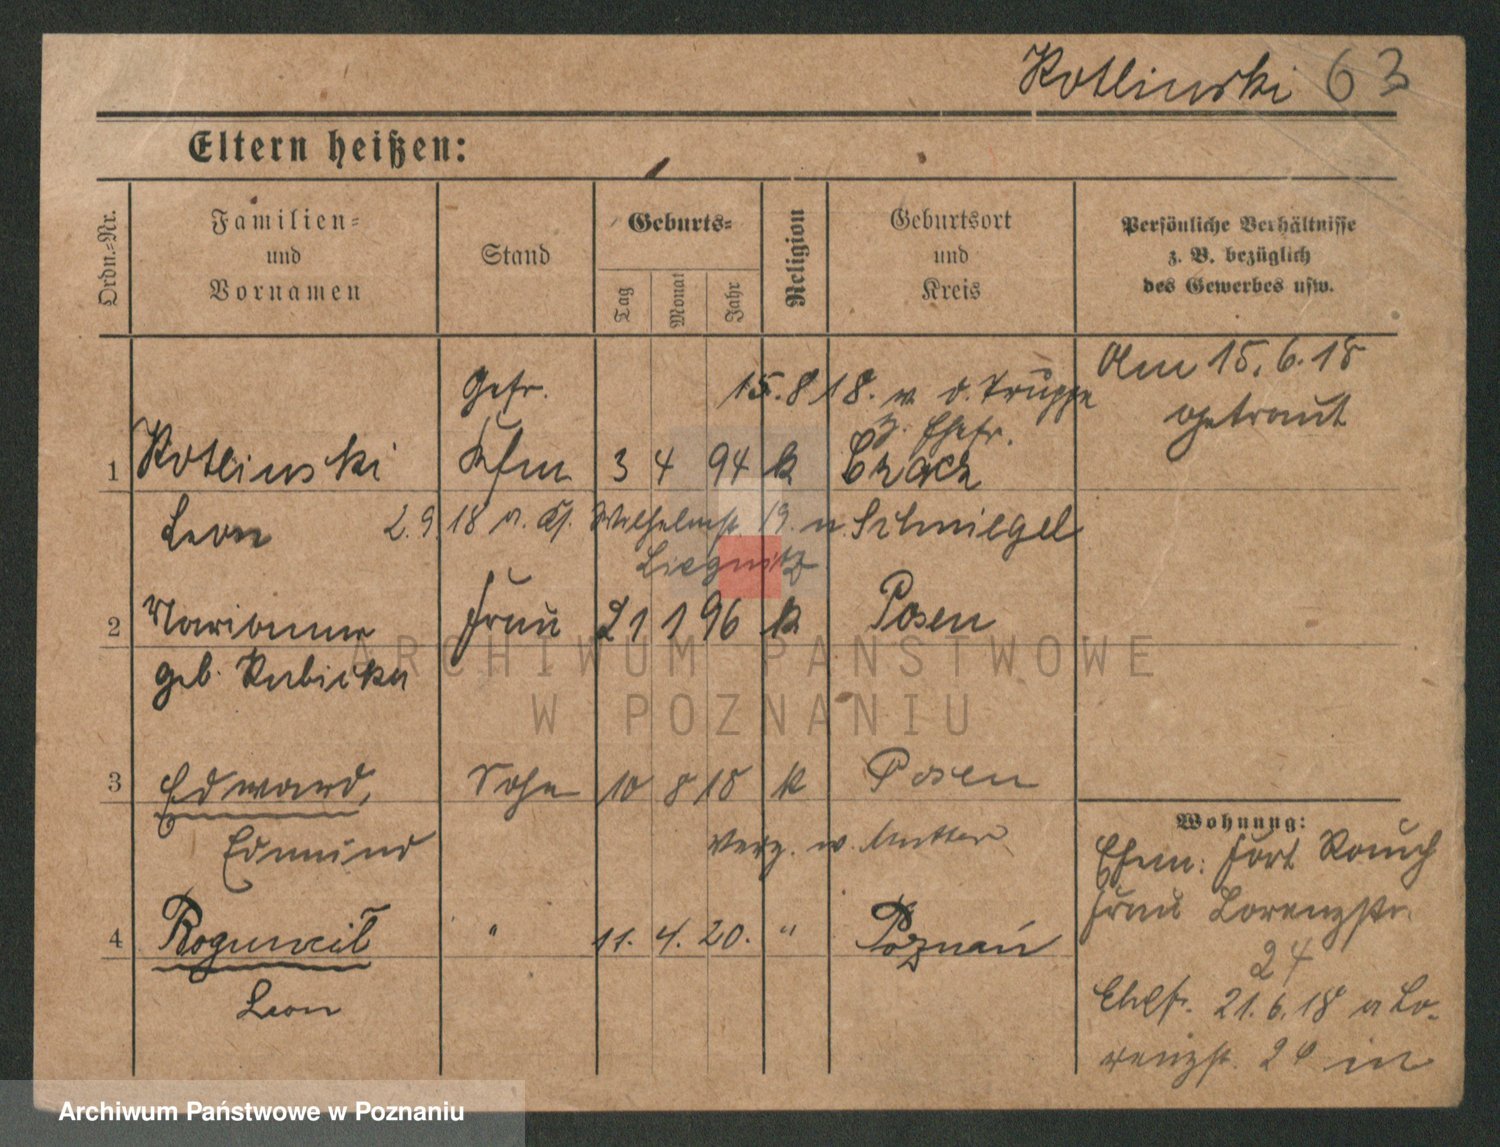 Kotlinski 63
Eltern heißen:
Ordn.-Nr.
Familien- und Vornamen
Stand
Geburts-
Tag
Monat
Jahr
Religion
Geburtsort und Kreis
Persönliche Verhältnisse z. B. bezüglich des Gewerbes usw.
Am 15.6.18
getraut
Gefr.
15.8.18. v. d. Truppe
z. Ehefr.
1 Kotlinski Kfm 3 4 94 k Czacz
Leon 2.9.18 a. Wilhelmst. 19. n. Schmiegel
Liegnitz
2 Marianne Frau 21 1 96 k Posen
geb. Kubicka
3 Edward, Sohn 10 8 18 k Posen
Edmund verz. w. Mutter
4 Bogumił " 11. 4. 20. " Poznań
Leon
Wohnung:
Ehem: Fort Rauch
Frau Lorenzstr.
24
Ehefr. 21.6.18 a Lo-
renzst. 24 in
ARCHIWUM PAŃSTWOWE
W POZNANIU
Archiwum Państwowe w Poznaniu